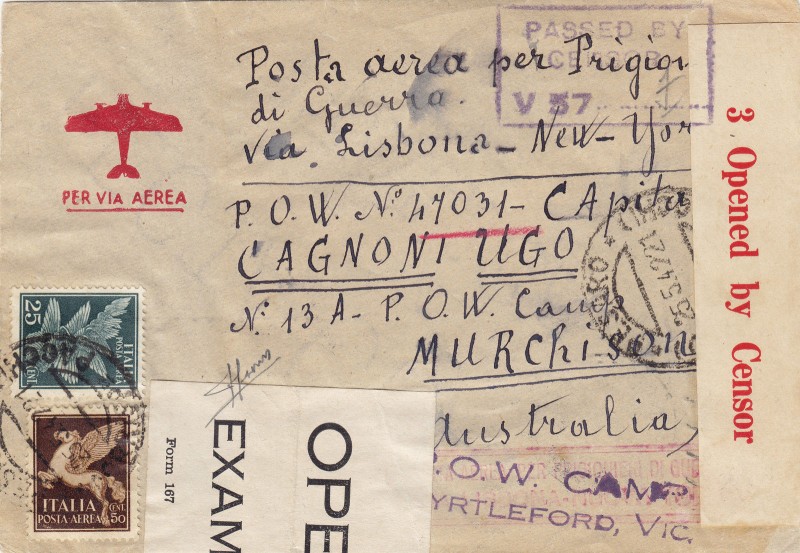 PASSED BY
CENSOR
V 57
Posta aerea per Prigion
di Guerra.
via Lisbona - New-Yor
PER VIA AEREA
P.O.W. Nº 47031- CApita
CAGNONI UGO
Nº 13 A - P.O.W. Camp
MURCHiSON
Australia
3 Opened by Censor
25
ITALIA
POSTA AEREA
ITALIA
POSTA-AEREA
CENT.
50
Form 167
EXAM
OPE
P.O.W. CAMP
MYRTLEFORD, VIC.